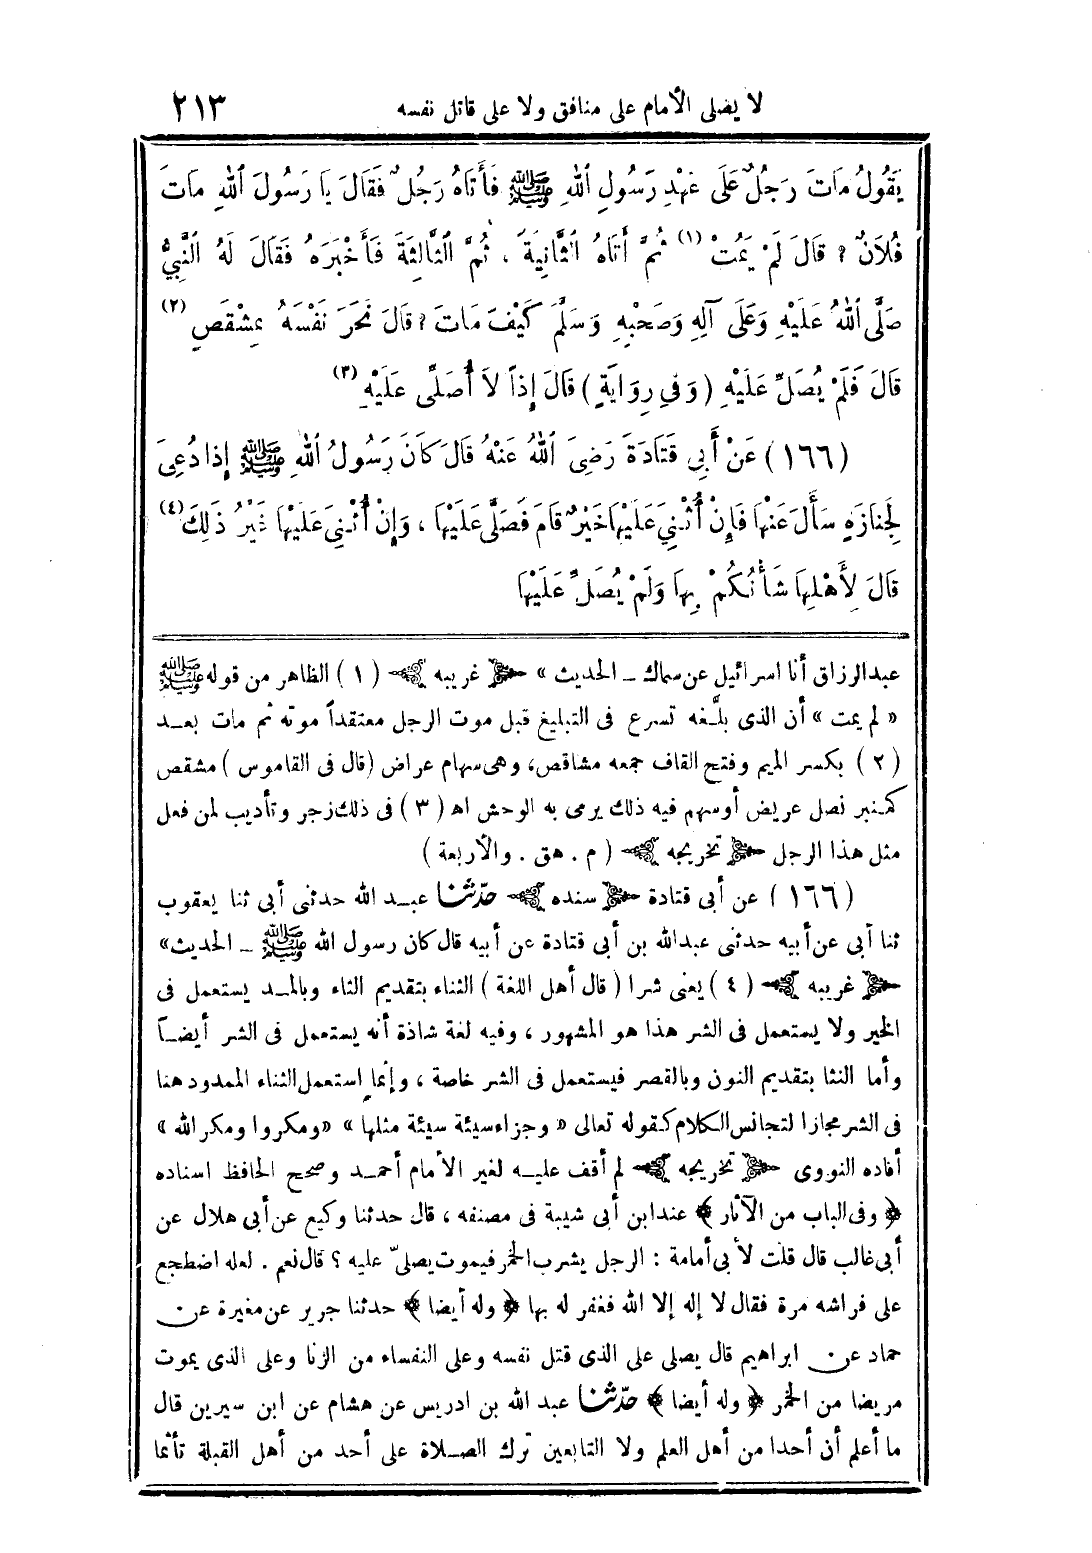 لا يصلى الأمام على منافق ولا على قاتل نفسه ٢١٣
يَقُولُ مَاتَ رَجُلٌ عَلَى عَهْدِ رَسُولِ اللهِ ﷺ فَأَتَاهُ رَجُلٌ فَقَالَ يَا رَسُولَ اللهِ مَاتَ
فُلَانٌ ؟ قَالَ لَمْ يَمُتْ (١) ثُمَّ أَتَاهُ الثَّانِيَةَ ، ثُمَّ الثَّالِثَةَ فَأَخْبَرَهُ فَقَالَ لَهُ النَّبِيُّ
صَلَّى اللهُ عَلَيْهِ وَعَلَى آلِهِ وَصَحْبِهِ وَسَلَّمَ كَيْفَ مَاتَ ؟ قَالَ نَحَرَ نَفْسَهُ بِمِشْقَصٍ (٢)
قَالَ فَلَمْ يُصَلِّ عَلَيْهِ (وَفِي رِوَايَةٍ) قَالَ إِذاً لاَ أُصَلَّى عَلَيْهِ (٣)
(١٦٦) عَنْ أَبِي قَتَادَةَ رَضِىَ اللهُ عَنْهُ قَالَ كَانَ رَسُولُ اللهِ ﷺ إِذَا دُعِىَ
لِجِنَازَةٍ سَأَلَ عَنْهَا فَإِنْ أُثْنِيَ عَلَيْهَا خَيْرٌ قَامَ فَصَلَّى عَلَيْهَا ، وَإِنْ أُثْنِيَ عَلَيْهَا غَيْرُ ذَلِكَ (٤)
قَالَ لِأَهْلِهَا شَأْنُكُمْ بِهَا وَلَمْ يُصَلِّ عَلَيْهَا
عبد الرزاق أنا اسرائيل عن سماك ــ الحديث » غريبه (١) الظاهر من قوله ﷺ
« لم يمت » أن الذى بلَّغه تسرع فى التبليغ قبل موت الرجل معتقداً موته ثم مات بعد
(٢) بكسر الميم وفتح القاف جمعه مشاقص، وهى سهام عراض (قال فى القاموس) مشقص
كمنبر نصل عريض أوسهم فيه ذلك يرمى به الوحش اه (٣) فى ذلك زجر وتأديب لمن فعل
مثل هذا الرجل تخريجه (م . هق . والأربعة)
(١٦٦) عن أبى قتادة سنده حدّثنا عبد الله حدثنى أبى ثنا يعقوب
ثنا أبى عن أبيه حدثنى عبدالله بن أبى قتادة عن أبيه قال كان رسول الله ﷺ ــ الحديث»
غريبه (٤) يعنى شرا (قال أهل اللغة) الثناء بتقديم الثاء وبالمد يستعمل فى
الخير ولا يستعمل فى الشر هذا هو المشهور ، وفيه لغة شاذة أنه يستعمل فى الشر أيضاً
وأما النثا بتقديم النون وبالقصر فيستعمل فى الشر خاصة ، وإنما إستعمل الثناء الممدود هنا
فى الشر مجازا لتجانس الكلام كقوله تعالى « وجزاء سيئة سيئة مثلها » «ومكروا ومكر الله »
أفاده النووى تخريجه لم أقف عليه لغير الأمام أحمد وصحح الحافظ اسناده
﴿ وفى الباب من الآثار ﴾ عند ابن أبى شيبة فى مصنفه ، قال حدثنا وكيع عن أبى هلال عن
أبى غالب قال قلت لأبى أمامة : الرجل يشرب الخمر فيموت يصلىّ عليه ؟ قال نعم . لعله اضطجع
على فراشه مرة فقال لا إله إلا الله فغفر له بها ﴿ وله أيضا ﴾ حدثنا جرير عن مغيرة عن
حماد عن ابراهيم قال يصلى على الذى قتل نفسه وعلى النفساء من الزنا وعلى الذى يموت
مريضا من الخمر ﴿ وله أيضا ﴾ حدّثنا عبد الله بن ادريس عن هشام عن ابن سيرين قال
ما أعلم أن أحدا من أهل العلم ولا التابعين ترك الصلاة على أحد من أهل القبلة تأثما